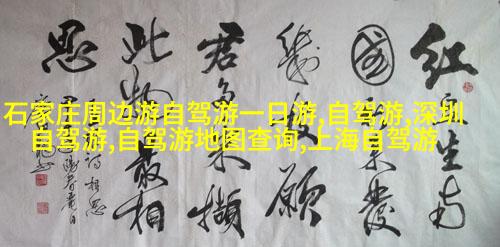 红豆生南
國春来發
幾枝願
君多采擷
此物最相
思
石家庄周边游自驾游一日游,自驾游,深圳
自驾游,自驾游地图查询,上海自驾游